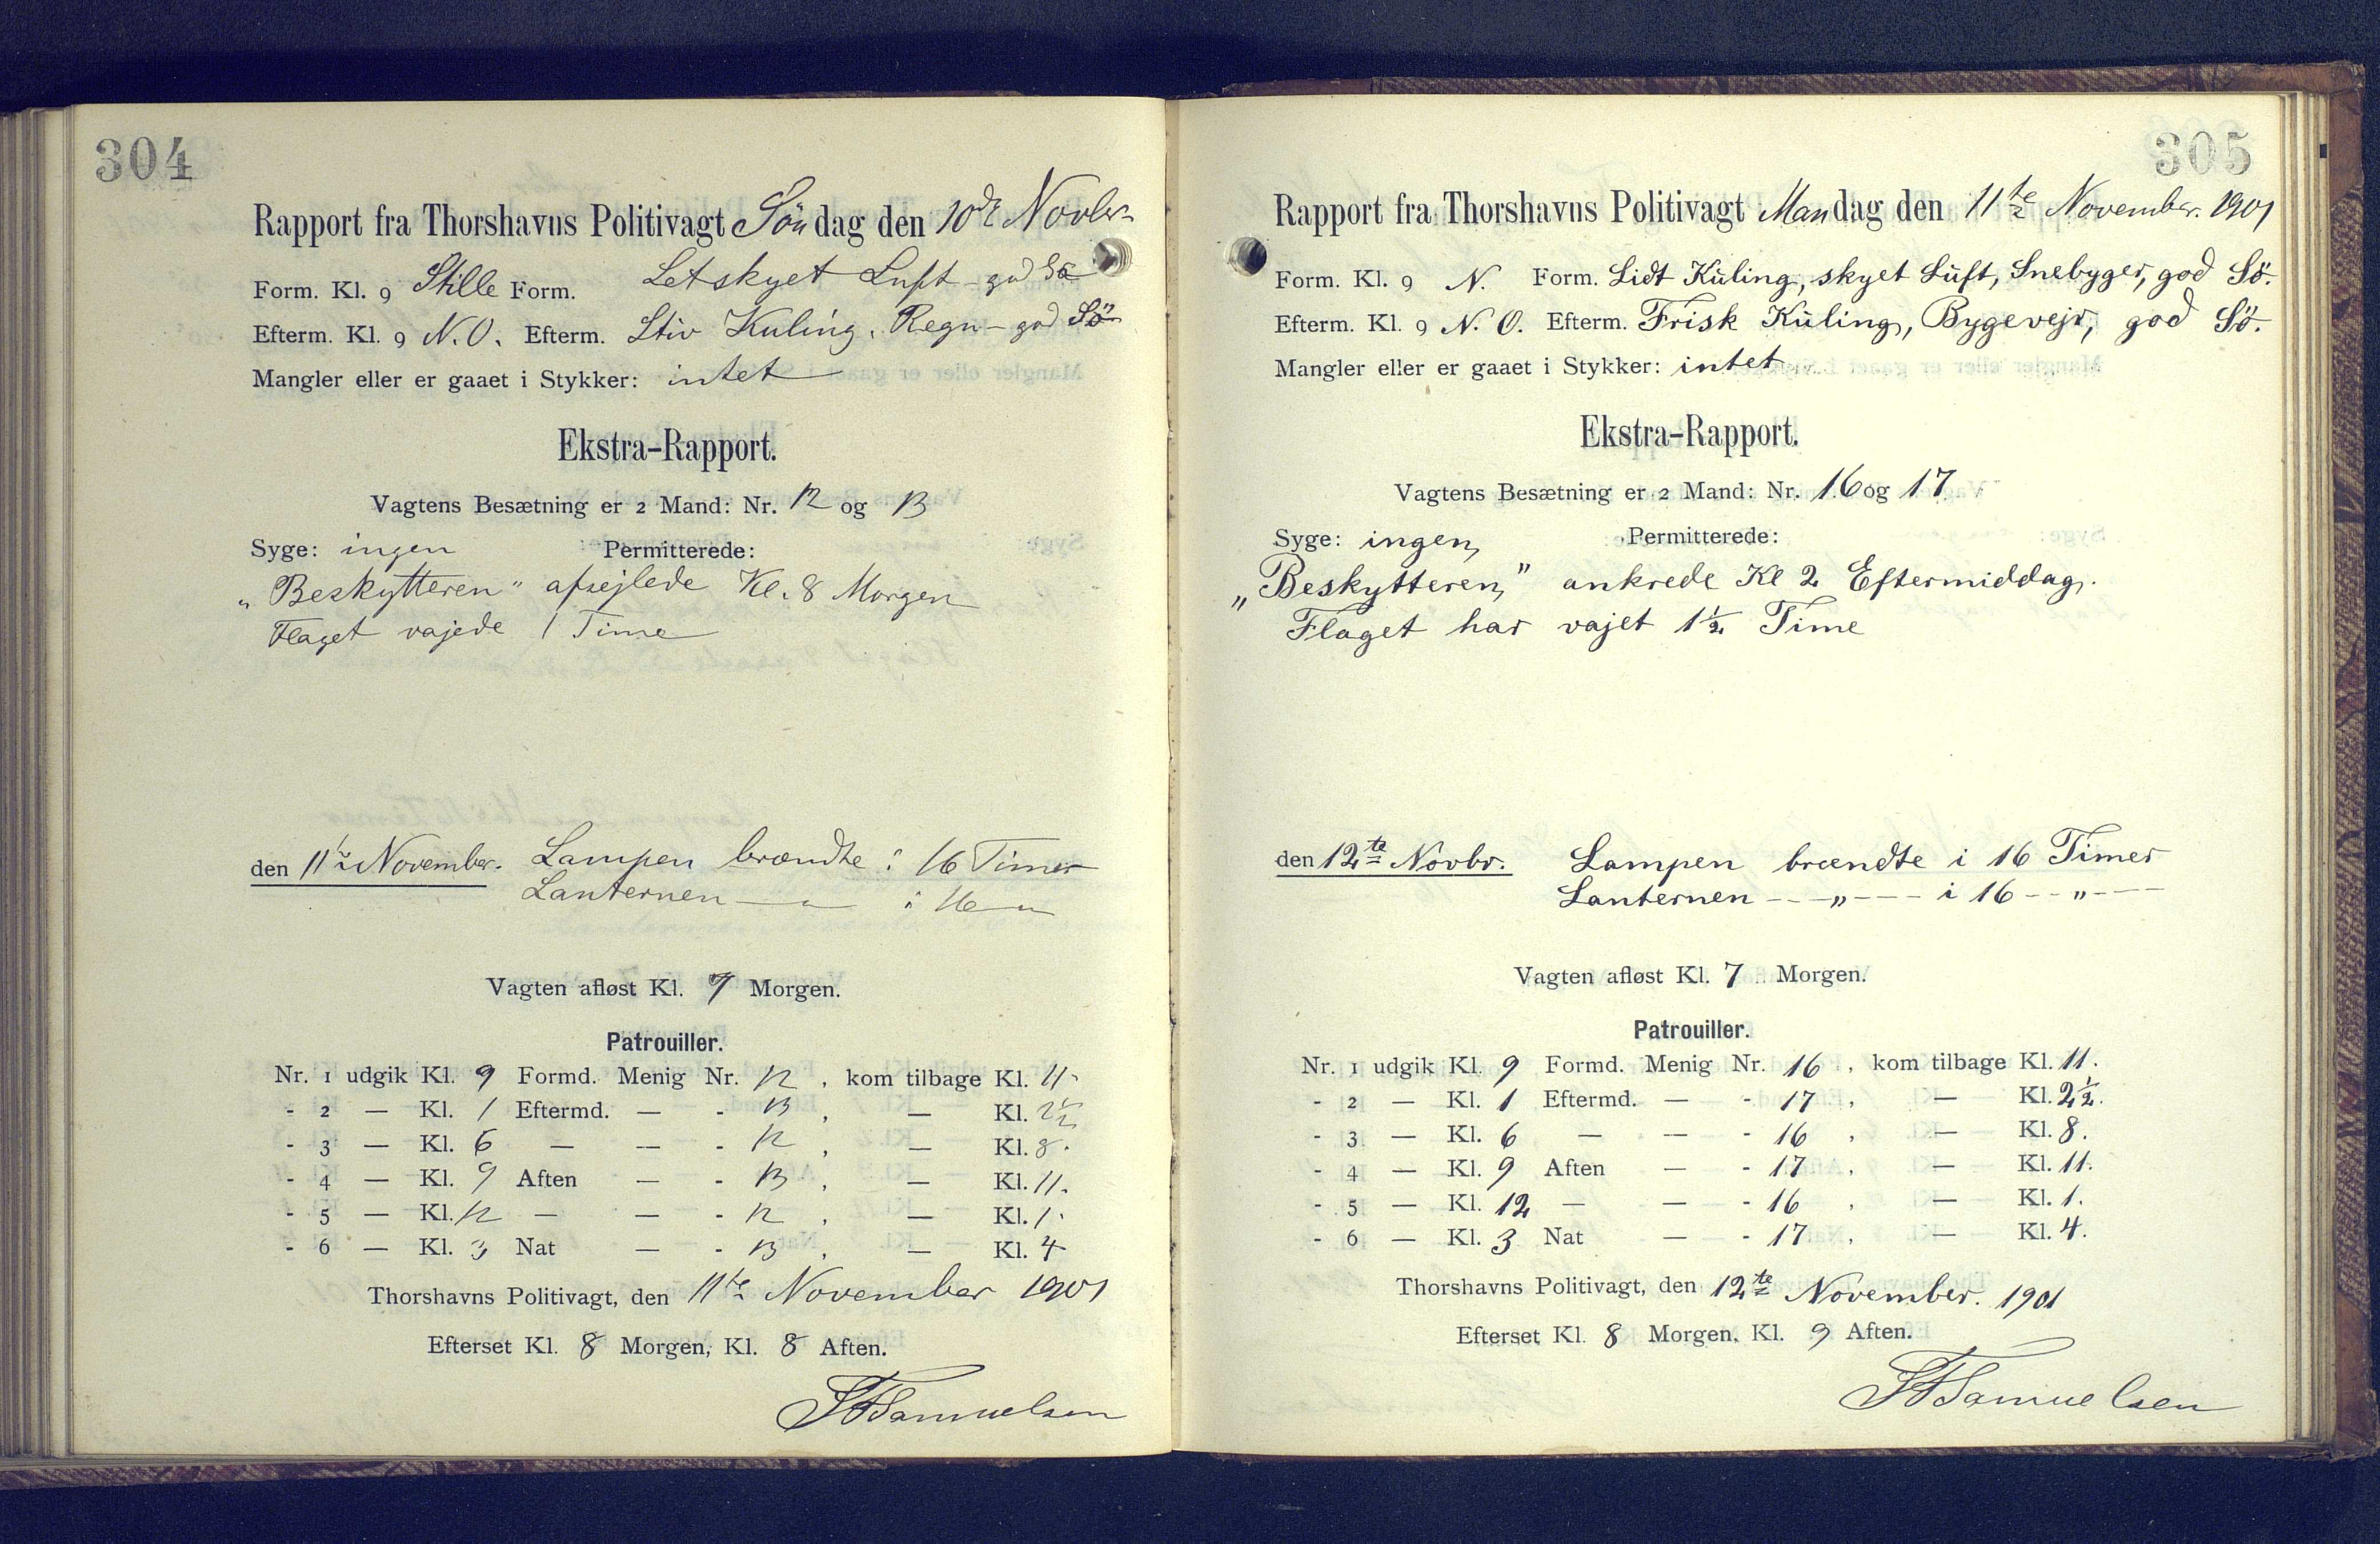 304
Rapport fra Thorshavns Politivagt Söndag den 10de Novbr
Form. Kl. 9 Stille Form. Letskyet Luft - god Sö
Efterm. Kl. 9 N.O. Efterm. Stiv Kuling, Regn - god Sö
Mangler eller er gaaet i Stykker: intet
Ekstra-Rapport.
Vagtens Besætning er 2 Mand: Nr. 12 og 13
Syge: ingen Permitterede:
„Beskytteren" afsejlede Kl. 8 Morgen
Flaget vajede 1 Time
den 11te November. Lampen brændte i 16 Timer
Lanternen — " — i 16 — " —
Vagten afløst Kl. 7 Morgen.
Patrouiller.
Nr. 1 udgik Kl. 9 Formd. Menig Nr. 12, kom tilbage Kl. 11.
- 2 — Kl. 1 Eftermd. — - 13, — Kl. 2½
- 3 — Kl. 6 — — - 12, — Kl. 8.
- 4 — Kl. 9 Aften — - 13, — Kl. 11.
- 5 — Kl. 12 — — - 12, — Kl. 1.
- 6 — Kl. 3 Nat — - 13, — Kl. 4
Thorshavns Politivagt, den 11te November 1901
Efterset Kl. 8 Morgen, Kl. 8 Aften.
Samuelsen
305
Rapport fra Thorshavns Politivagt Mandag den 11te November. 1901
Form. Kl. 9 N. Form. Lidt Kuling, skyet Luft, Snebyger, god Sö.
Efterm. Kl. 9 N.O. Efterm. Frisk Kuling, Bygevejr, god Sö.
Mangler eller er gaaet i Stykker: intet
Ekstra-Rapport.
Vagtens Besætning er 2 Mand: Nr. 16 og 17
Syge: ingen, Permitterede:
„Beskytteren," ankrede Kl 2 Eftermiddag.
Flaget har vajet 1½ Time
den 12te Novbr. Lampen brændte i 16 Timer
Lanternen — " — i 16 — " —
Vagten afløst Kl. 7 Morgen.
Patrouiller.
Nr. 1 udgik Kl. 9 Formd. Menig Nr. 16, kom tilbage Kl. 11.
- 2 — Kl. 1 Eftermd. — - 17, — Kl. 2½.
- 3 — Kl. 6 — — - 16, — Kl. 8.
- 4 — Kl. 9 Aften — - 17, — Kl. 11.
- 5 — Kl. 12 — — - 16, — Kl. 1.
- 6 — Kl. 3 Nat — - 17, — Kl. 4.
Thorshavns Politivagt, den 12te November. 1901
Efterset Kl. 8 Morgen, Kl. 9 Aften.
Samuelsen